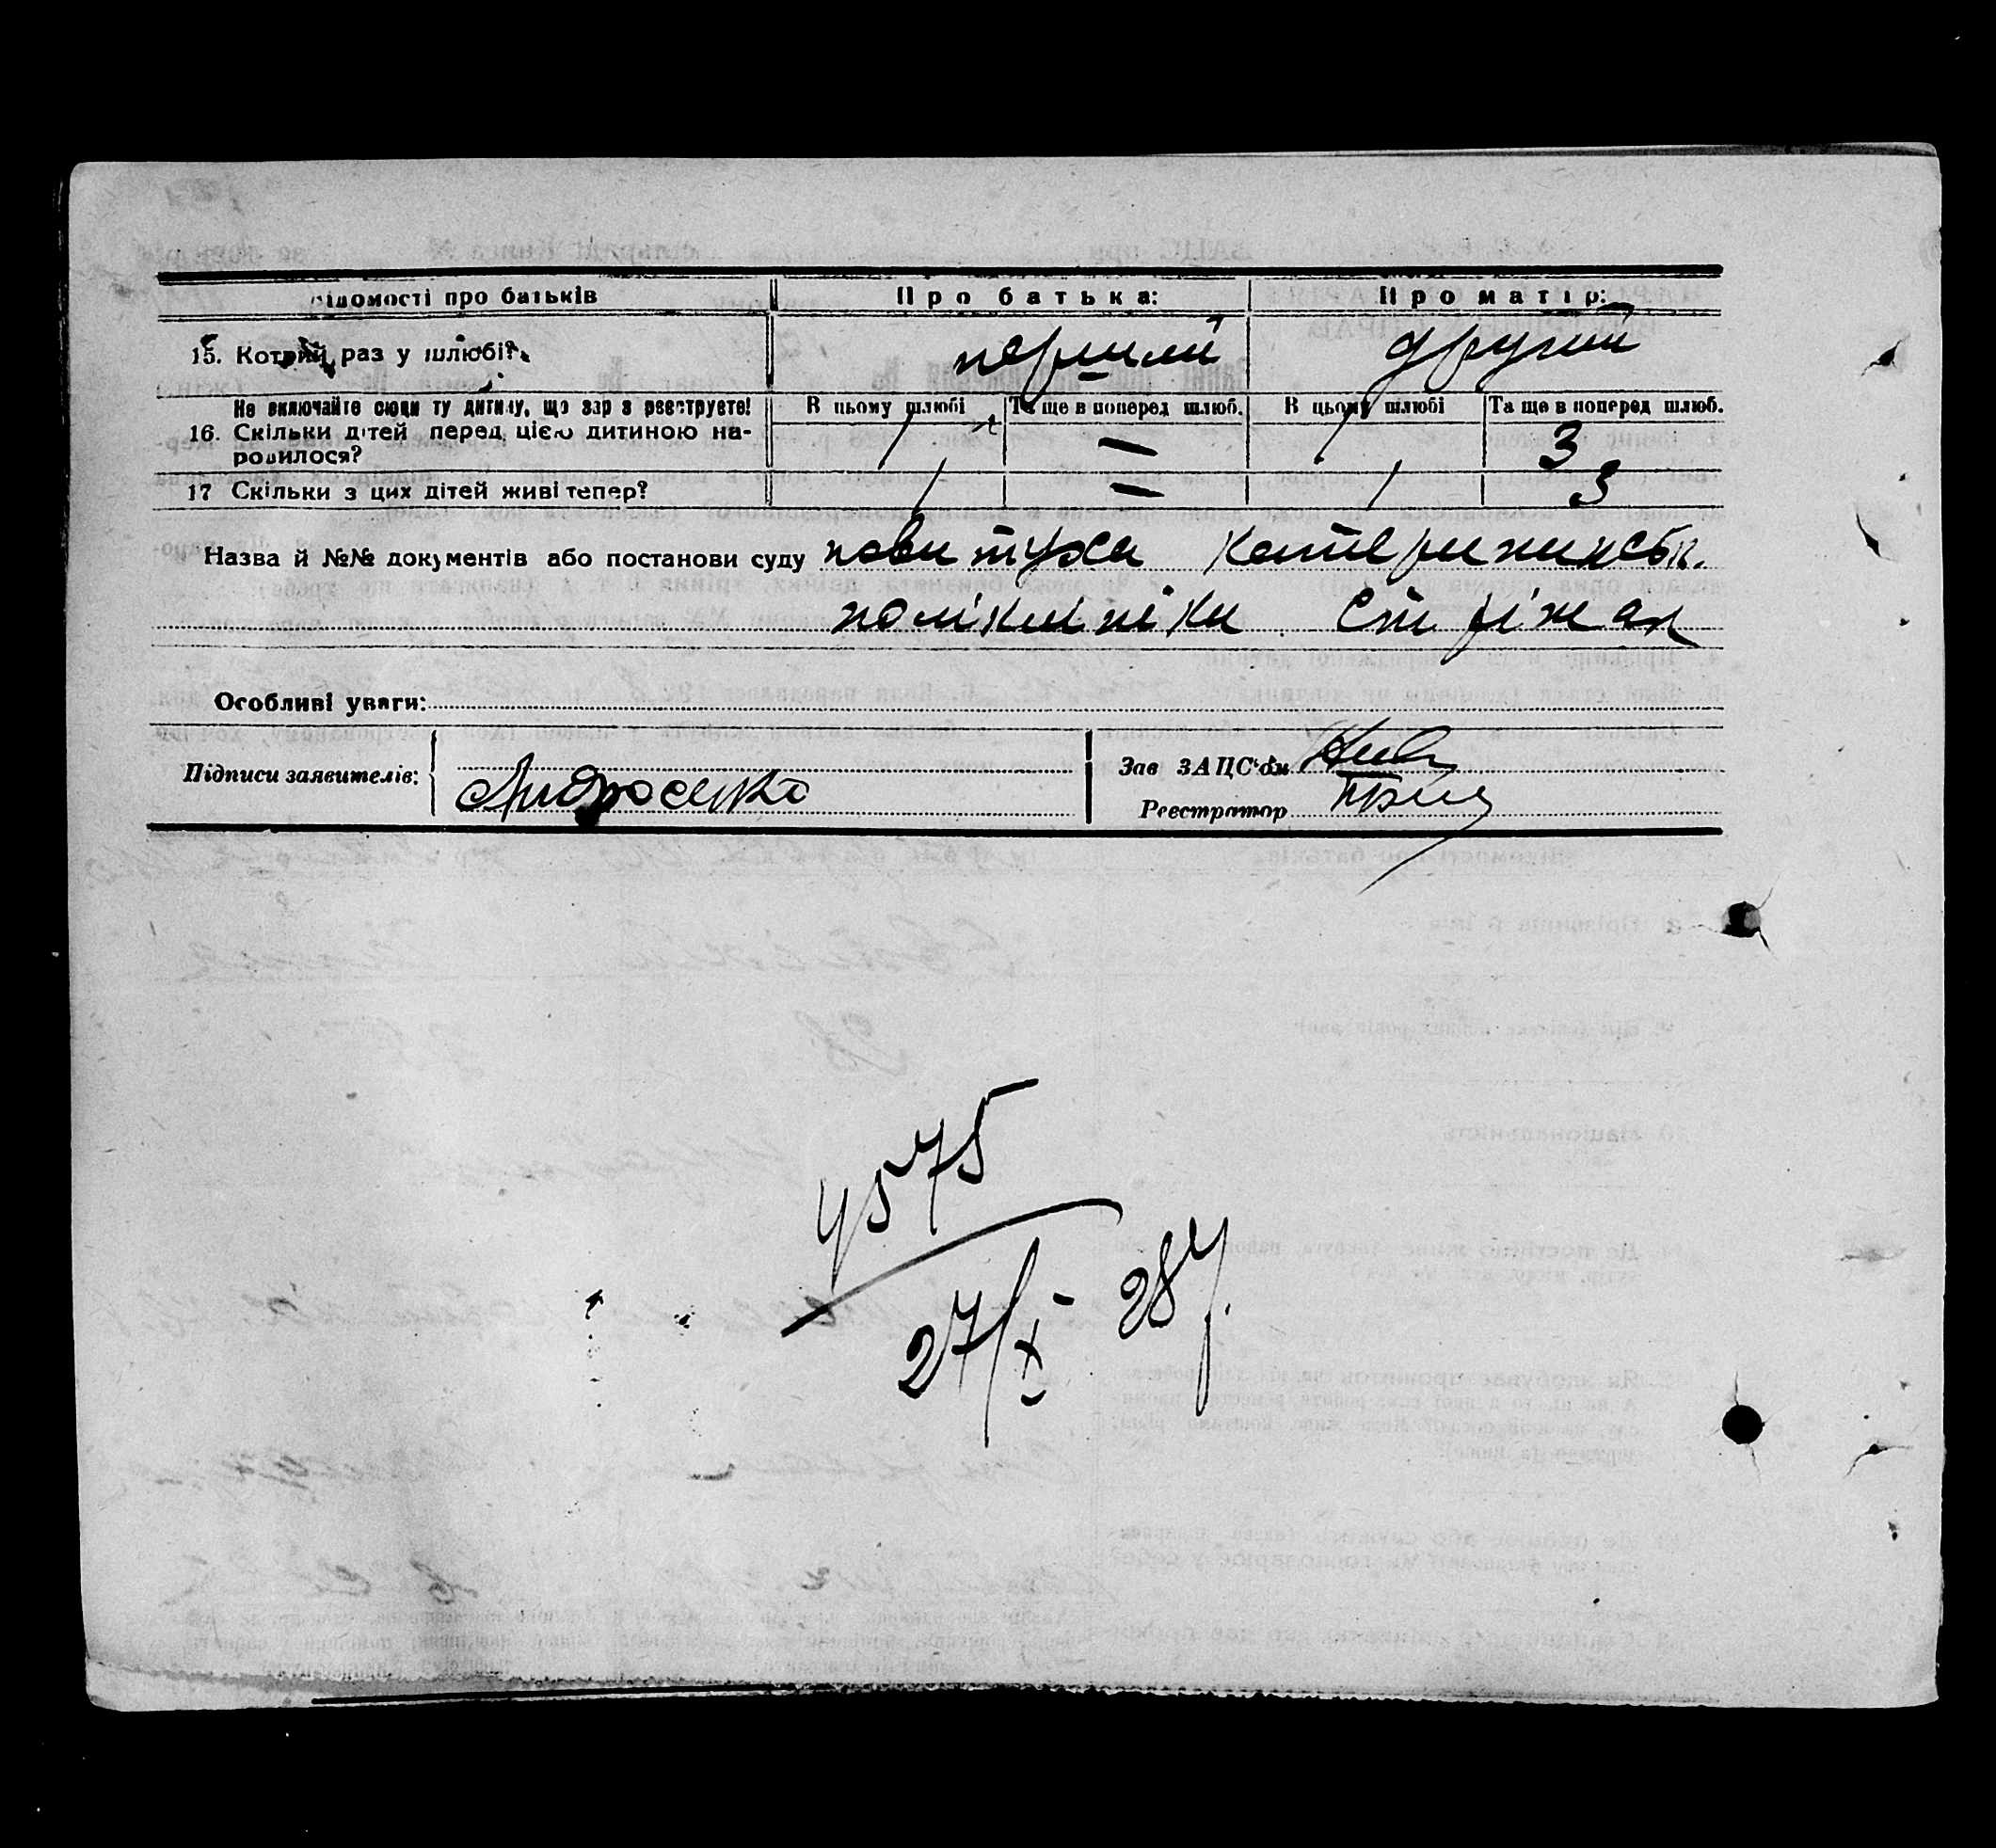 Відомості про батьків Про батька: Про матір:
15. Котрий раз у шлюбі? перший другий
Не включайте сюди ту дитину, що зараз реєструєте! В цьому шлюбі Та ще в поперед шлюб. В цьому шлюбі Та ще в поперед шлюб.
16. Скільки дітей перед цією дитиною на-
родилося? 1 — 1 3
17 Скільки з цих дітей живі тепер? 1 — 1 3
Назва й №№ документів або постанови суду повитуха Катерининськ.
поліклініки Стріжак
Особливі уваги:
Підписи заявителів: Андросенко
Зав ЗАЦС'ом
Реєстратор
4575
27/X - 28 р.